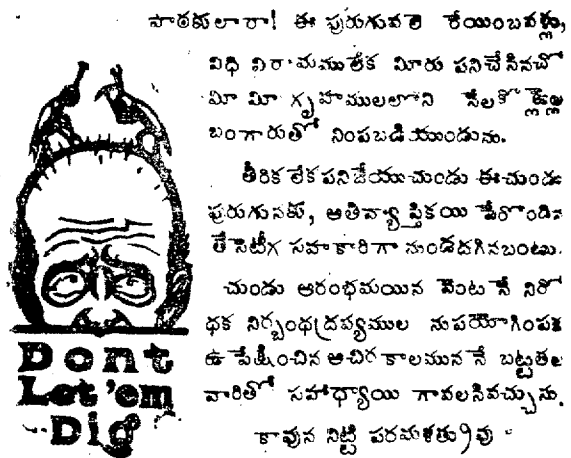 పాఠకులారా! ఈ పురుగువలె రేయింబవళ్లు,
విధి విరామములేక మీరు పనిచేసినచో
మీ మీ గృహములలోని నేలకొళ్లెల్ల
బంగారుతో నింపబడియుండును.
తీరిక లేక పనిజేయుచుండు ఈచుండు
పురుగునకు, అతివ్యాప్తికయి పేరొందిన
తేనెటీగ సహకారిగా నుండదగినబంటు.
చుండు ఆరంభమయిన వెంటనే నిరో
ధక నిర్బంధద్రవ్యముల నుపయోగింపక
ఉపేక్షించిన అచిరకాలముననే బట్టతల
వారితో సహాధ్యాయి గావలసివచ్చును.
కావున నిట్టి పరమశత్రువు
Dont
Let 'em
Dig